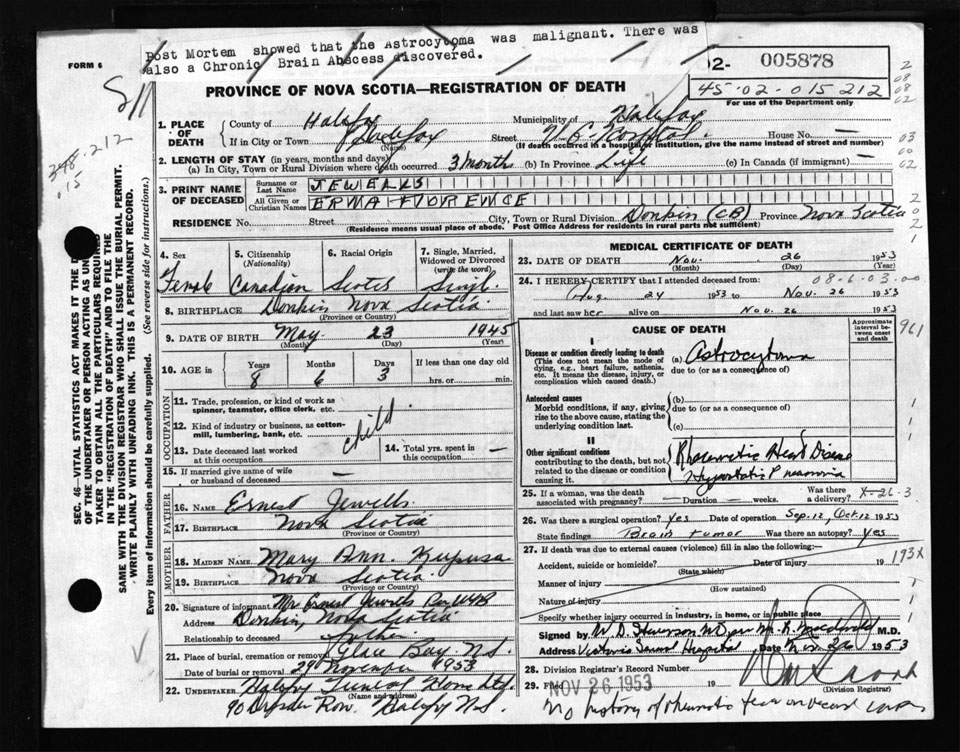 Post Mortem showed that the Astrocytoma was malignant. There was
also a Chronic Brain Abscess discovered.
FORM 6
02- 005878
45-02-015212
For use of the Department only
PROVINCE OF NOVA SCOTIA—REGISTRATION OF DEATH
348.212
.15
SEC. 46—VITAL STATISTICS ACT MAKES IT THE D
OF THE UNDERTAKER OR PERSON ACTING AS UN
TAKER TO OBTAIN ALL THE PARTICULARS REQUIRED
IN THE "REGISTRATION OF DEATH" AND TO FILE THE
SAME WITH THE DIVISION REGISTRAR WHO SHALL ISSUE THE BURIAL PERMIT.
WRITE PLAINLY WITH UNFADING INK. THIS IS A PERMANENT RECORD.
Every item of information should be carefully supplied. (See reverse side for instructions.)
1. PLACE OF DEATH
County of Halifax Municipality of Halifax
If in City or Town Halifax (Name) Street V.G. Hospital. House No. —
(If death occurred in a hospital or institution, give the name instead of street and number)
2. LENGTH OF STAY (in years, months and days)
(a) In City, Town or Rural Division where death occurred 3 months (b) In Province Life (c) In Canada (if immigrant) —
3. PRINT NAME OF DECEASED
Surname or Last Name JEWELLS
All Given or Christian Names ERMA FLORENCE
RESIDENCE No. Street City, Town or Rural Division Donkin (CB) Province Nova Scotia
(Residence means usual place of abode. Post Office Address for residents in rural parts not sufficient)
4. Sex Female
5. Citizenship (Nationality) Canadian
6. Racial Origin Scotch
7. Single, Married, Widowed or Divorced (write the word) Single
8. BIRTHPLACE Donkin Nova Scotia
(Province or Country)
9. DATE OF BIRTH May 23 1945
(Month) (Day) (Year)
10. AGE in Years 8 Months 6 Days 3 If less than one day old
hrs. or min.
OCCUPATION
11. Trade, profession, or kind of work as spinner, teamster, office clerk, etc.
12. Kind of industry or business, as cotton-mill, lumbering, bank, etc. child
13. Date deceased last worked at this occupation 14. Total yrs. spent in this occupation —
15. If married give name of wife or husband of deceased —
FATHER
16. NAME Ernest Jewells
17. BIRTHPLACE Nova Scotia
(Province or Country)
MOTHER
18. MAIDEN NAME Mary Ann. Kupusa
19. BIRTHPLACE Nova Scotia.
(Province or Country)
20. Signature of informant Mr Ernest Jewells Per WHB
Address Donkin, Nova Scotia
Relationship to deceased father
21. Place of burial, cremation or removal Glace Bay N.S.
Date of burial or removal 29 November 1953
22. UNDERTAKER Funeral Home Ltd.
(Name and address)
90 Dresden Row. Halifax N.S.
MEDICAL CERTIFICATE OF DEATH
23. DATE OF DEATH Nov. 26 1953
(Month) (Day) (Year)
24. I HEREBY CERTIFY that I attended deceased from: 08-6-03-00
Aug. 24 1953 to Nov. 26 1953
and last saw her alive on Nov. 26 1953
CAUSE OF DEATH
Approximate interval between onset and death
I
Disease or condition directly leading to death (a) Astrocytoma
(This does not mean the mode of dying, e.g., heart failure, asthenia, etc. It means the disease, injury, or complication which caused death.)
due to (or as a consequence of)
Antecedent causes (b)
Morbid conditions, if any, giving rise to the above cause, stating the underlying condition last.
due to (or as a consequence of)
(c)
II
Other significant conditions
contributing to the death, but not related to the disease or condition causing it.
Rheumatic Heart Disease
Hypostatic Pneumonia
25. If a woman, was the death associated with pregnancy? — Duration — weeks. Was there a delivery?
26. Was there a surgical operation? Yes Date of operation Sep. 12, Oct. 12 1953
State findings Brain tumor Was there an autopsy? yes
27. If death was due to external causes (violence) fill in also the following:—
Accident, suicide or homicide? Date of injury 19
(State which)
Manner of injury
(How sustained)
Nature of injury
Specify whether injury occurred in industry, in home, or in public place
Signed by W. D. Stevenson M.D. M.D.
Address Victoria General Hospital Date Nov. 26 1953
28. Division Registrar's Record Number
29. Filed NOV 26 1953
(Division Registrar)
No history of rheumatic fever on record